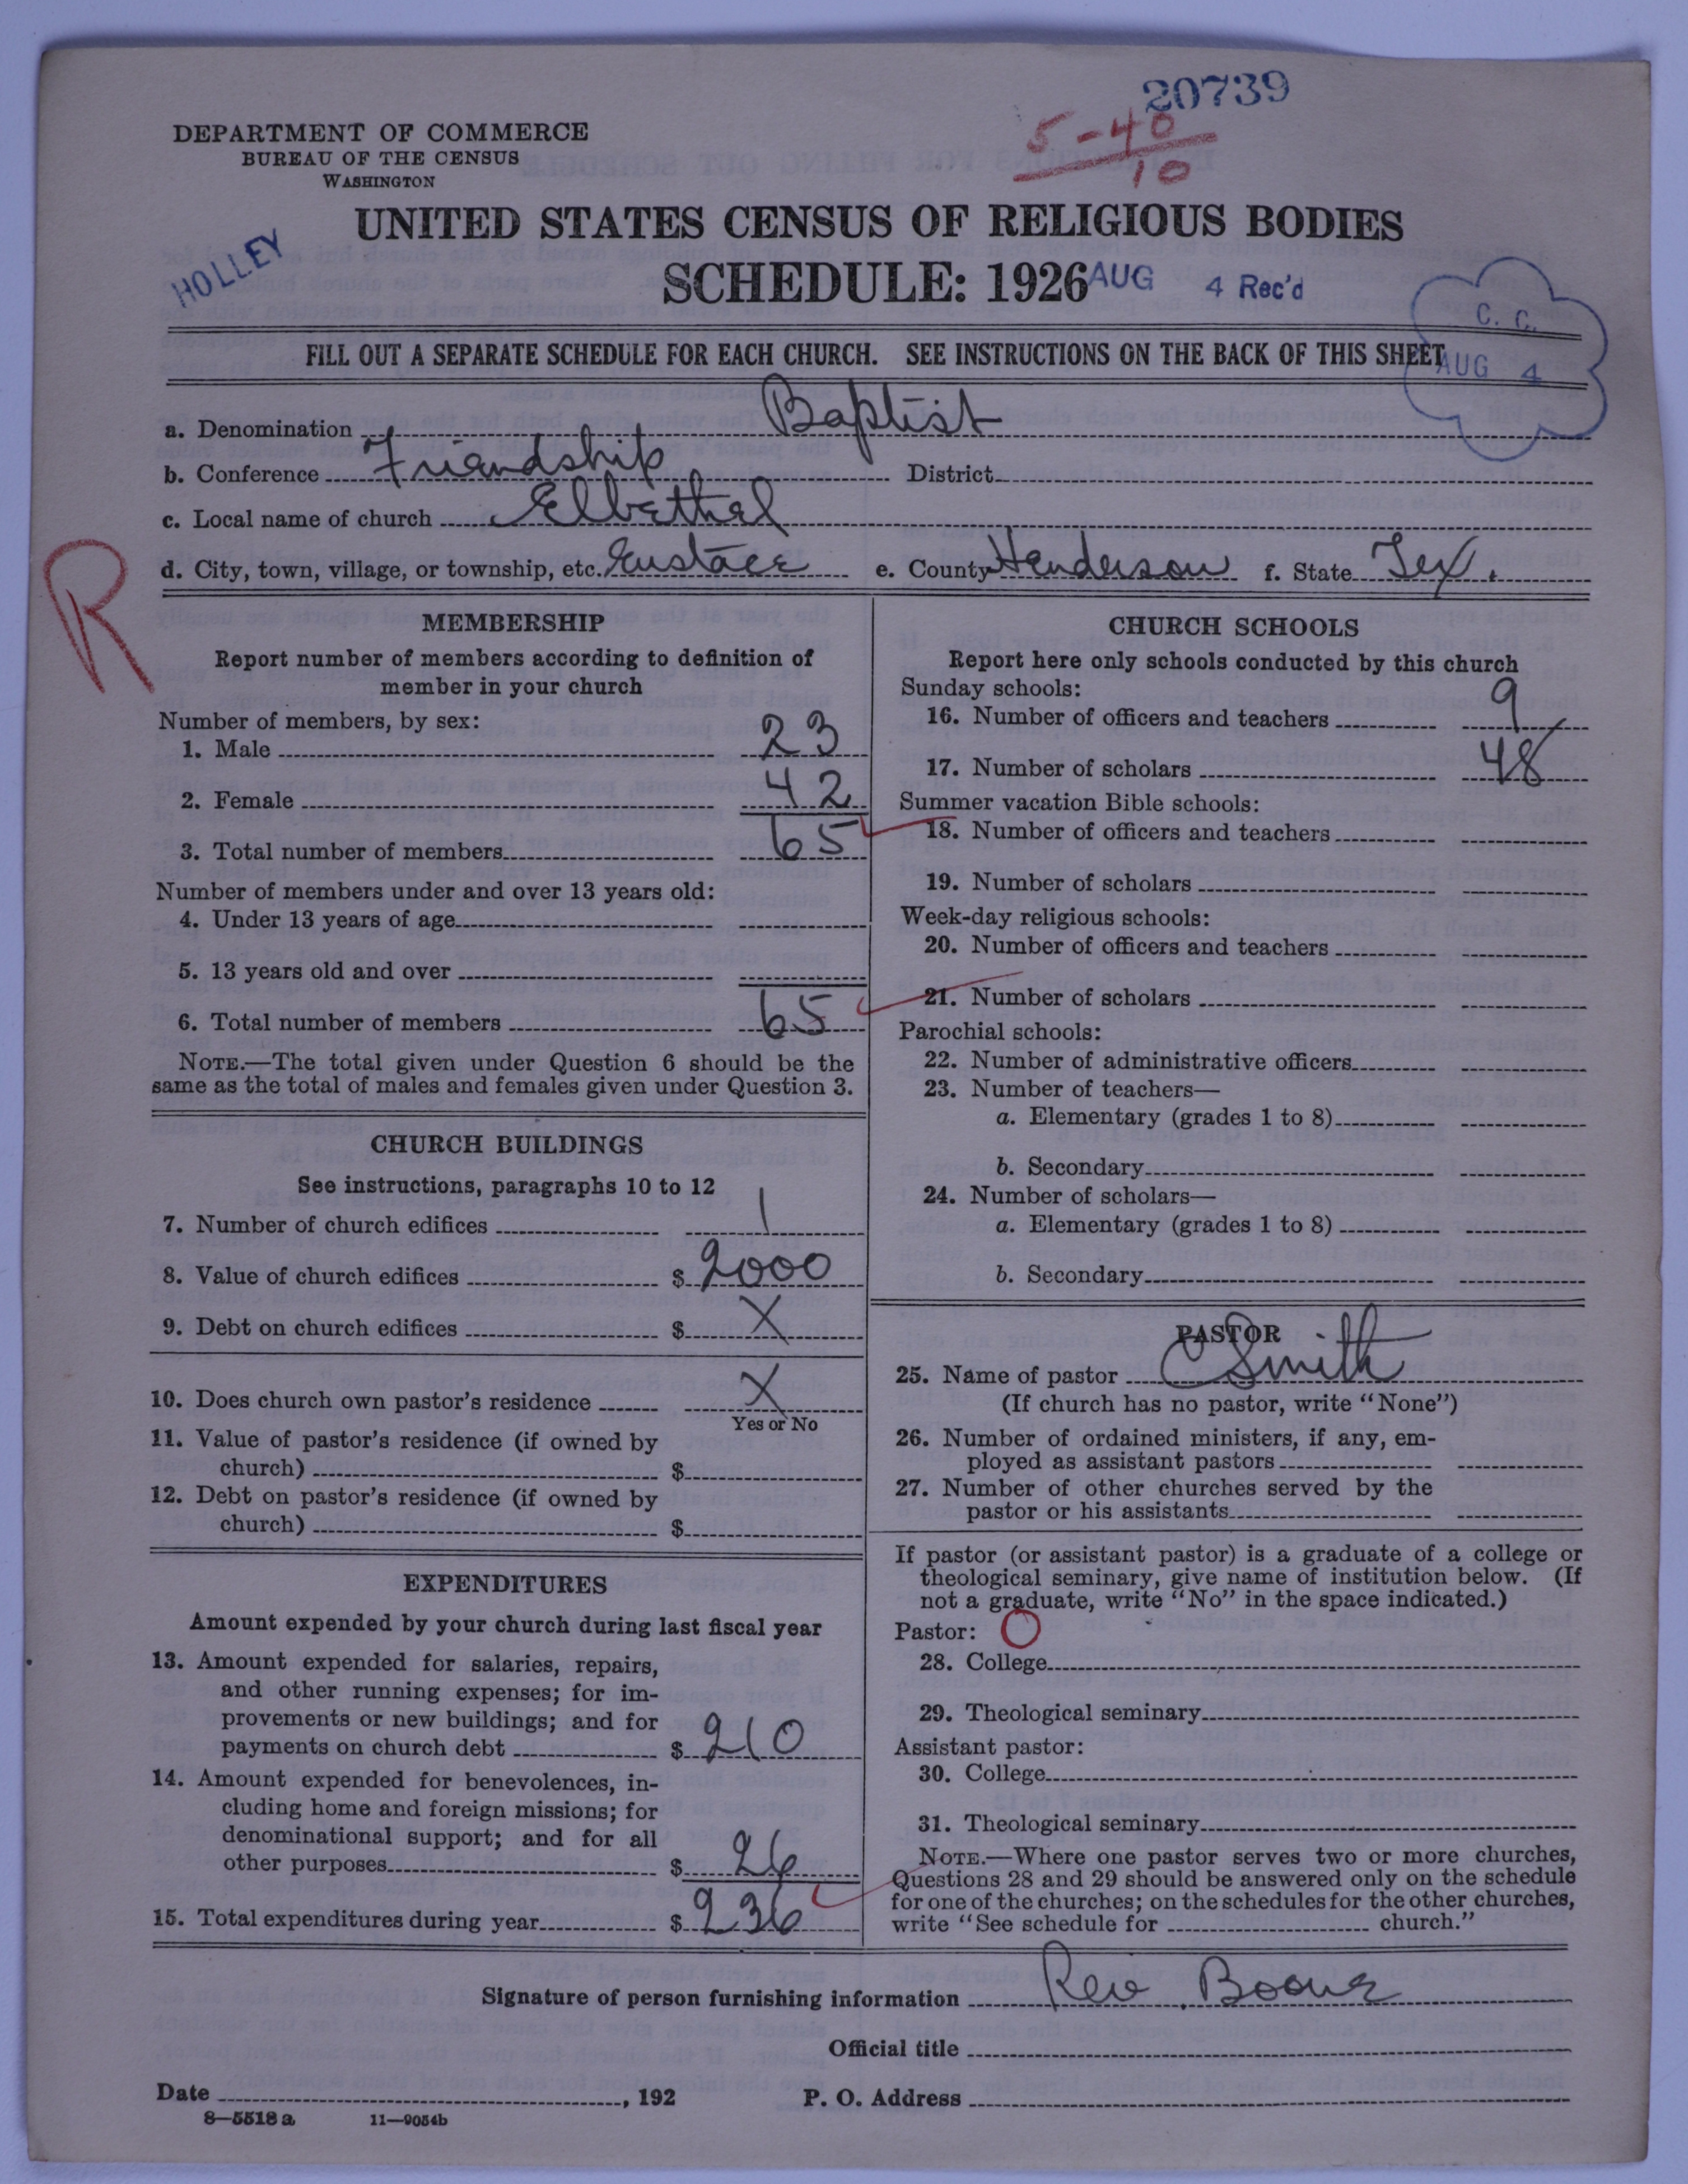 20739
5-40
10
DEPARTMENT OF COMMERCE
BUREAU OF THE CENSUS
WASHINGTON
UNITED STATES CENSUS OF RELIGIOUS BODIES
HOLLEY
SCHEDULE: 1926
AUG 4 Rec'd
C. C.
AUG 4
FILL OUT A SEPARATE SCHEDULE FOR EACH CHURCH. SEE INSTRUCTIONS ON THE BACK OF THIS SHEET
a. Denomination Baptist
b. Conference Friendship District
c. Local name of church Elbethel
d. City, town, village, or township, etc. Eustace e. County Henderson f. State Tex.
R
MEMBERSHIP
Report number of members according to definition of
member in your church
Number of members, by sex:
1. Male 23
2. Female 42
3. Total number of members 65
Number of members under and over 13 years old:
4. Under 13 years of age
5. 13 years old and over
6. Total number of members 65
NOTE.—The total given under Question 6 should be the
same as the total of males and females given under Question 3.
CHURCH BUILDINGS
See instructions, paragraphs 10 to 12
7. Number of church edifices 1
8. Value of church edifices $ 2000
9. Debt on church edifices $ X
10. Does church own pastor's residence X
Yes or No
11. Value of pastor's residence (if owned by
church) $
12. Debt on pastor's residence (if owned by
church) $
EXPENDITURES
Amount expended by your church during last fiscal year
13. Amount expended for salaries, repairs,
and other running expenses; for im-
provements or new buildings; and for
payments on church debt $ 210
14. Amount expended for benevolences, in-
cluding home and foreign missions; for
denominational support; and for all
other purposes $ 26
15. Total expenditures during year $ 236
CHURCH SCHOOLS
Report here only schools conducted by this church
Sunday schools:
16. Number of officers and teachers 9
17. Number of scholars 48
Summer vacation Bible schools:
18. Number of officers and teachers
19. Number of scholars
Week-day religious schools:
20. Number of officers and teachers
21. Number of scholars
Parochial schools:
22. Number of administrative officers
23. Number of teachers—
a. Elementary (grades 1 to 8)
b. Secondary
24. Number of scholars—
a. Elementary (grades 1 to 8)
b. Secondary
PASTOR
25. Name of pastor C Smith
(If church has no pastor, write "None")
26. Number of ordained ministers, if any, em-
ployed as assistant pastors
27. Number of other churches served by the
pastor or his assistants
If pastor (or assistant pastor) is a graduate of a college or
theological seminary, give name of institution below. (If
not a graduate, write "No" in the space indicated.)
Pastor: O
28. College
29. Theological seminary
Assistant pastor:
30. College
31. Theological seminary
NOTE.—Where one pastor serves two or more churches,
Questions 28 and 29 should be answered only on the schedule
for one of the churches; on the schedules for the other churches,
write "See schedule for church."
Signature of person furnishing information Rev. Boone
Official title
Date , 192 P. O. Address
8—5518 a 11—9054b